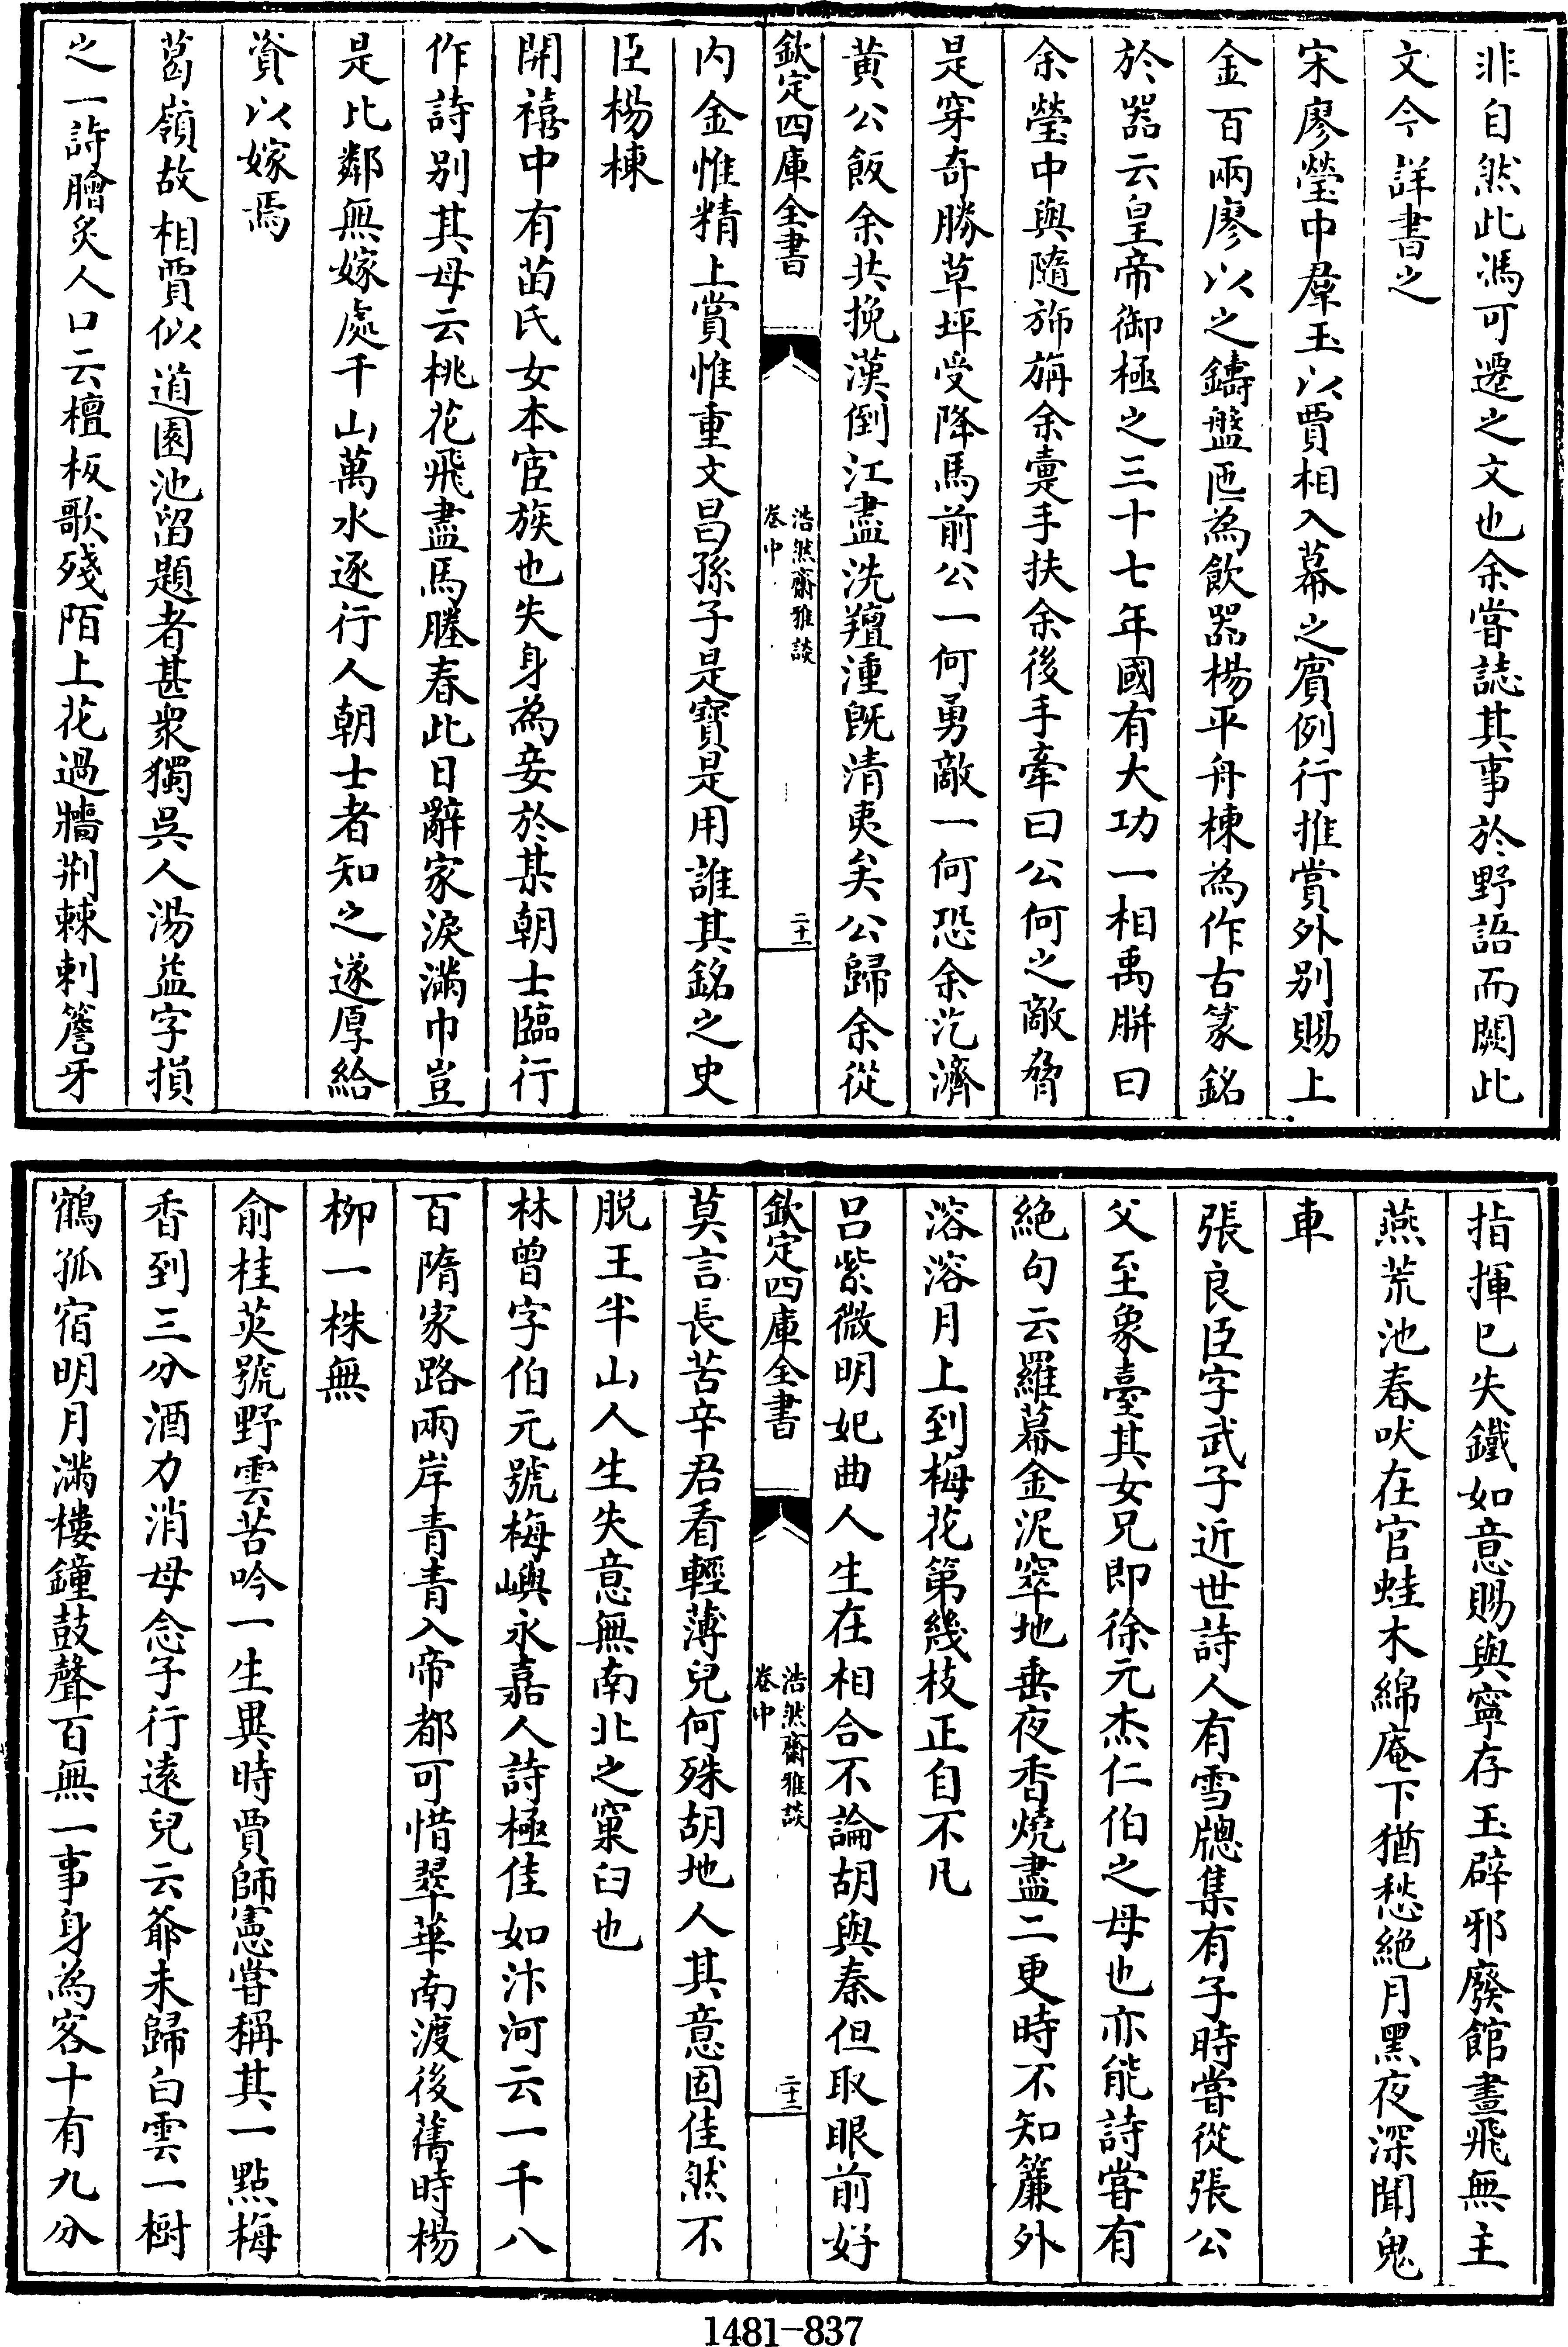 非自然此馮可遷之文也余嘗誌其事於野語而闕此
文今詳書之
宋廖瑩中羣玉以賈相入幕之賓例行推賞外别賜上
金百兩廖以之鑄盤匜為飲器楊平舟棟為作古篆銘
於器云皇帝御極之三十七年國有大功一相禹胼曰
余瑩中與隨旆旃余橐手扶余後手牽曰公何之敵脅
是穿奇勝草坪受降馬前公一何勇敵一何恐余汔濟
黄公飯余共挽漢倒江盡洗羶湩既清夷矣公歸余從
欽定四庫全書
浩然齋雅談
卷中
二十一
内金惟精上賞惟重文昌孫子是寳是用誰其銘之史
臣楊棟
開禧中有苗氏女本宦族也失身為妾於某朝士臨行
作詩别其母云桃花飛盡馬塍春此日辭家淚滿巾豈
是比鄰無嫁處千山萬水逐行人朝士者知之遂厚給
資以嫁焉
葛嶺故相賈似道園池留題者甚衆獨吳人湯益字損
之一詩膾炙人口云檀板歌殘陌上花過牆荆棘刺簷牙
指揮已失鐵如意賜與寧存玉辟邪廢館晝飛無主
燕荒池春吠在官蛙木綿庵下猶愁絶月黑夜深聞鬼
車
張良臣字武子近世詩人有雪牕集有子時嘗從張公
父至象臺其女兄即徐元杰仁伯之母也亦能詩嘗有
絶句云羅幕金泥窣地垂夜香燒盡二更時不知簾外
溶溶月上到梅花第幾枝正自不凡
吕紫微明妃曲人生在相合不論胡與秦但取眼前好
欽定四庫全書
浩然齋雅談
卷中
二十二
莫言長苦辛君看輕薄兒何殊胡地人其意固佳然不
脱王半山人生失意無南北之窠臼也
林曾字伯元號梅嶼永嘉人詩極佳如汴河云一千八
百隋家路兩岸青青入帝都可惜翠華南渡後舊時楊
柳一株無
俞桂英號野雲苦吟一生異時賈師憲嘗稱其一點梅
香到三分酒力消母念子行遠兒云爺未歸白雲一樹
鶴孤宿明月滿樓鐘鼓聲百無一事身為客十有九分
1481-837